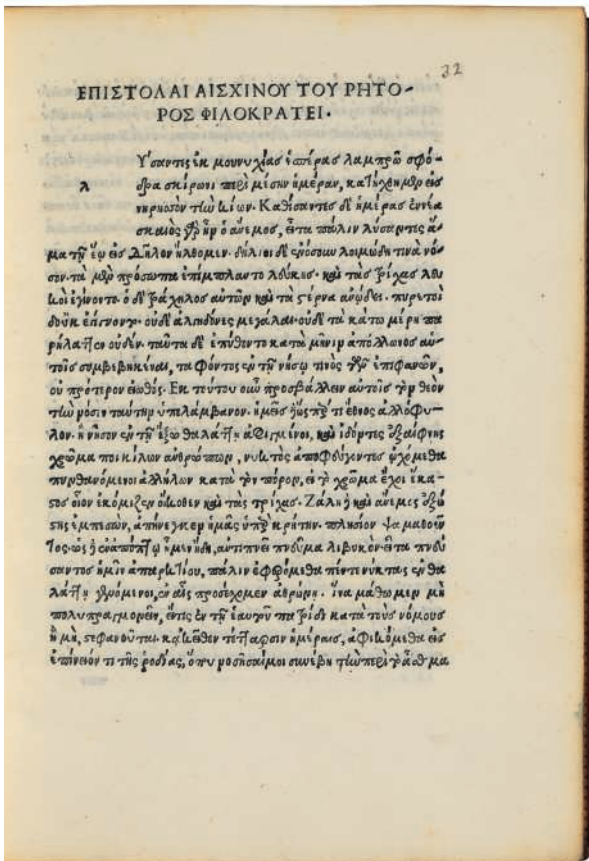 32
ΕΠΙΣΤΟΛΑΙ ΑΙΣΧΙΝΟΥ ΤΟΥ ΡΗΤΟ-
ΡΟΣ ΦΙΛΟΚΡΑΤΕΙ.
Υ̓́σαντες ἐκ μουνυχίας ἑσπέρας λαμπρῶ σφό-
λ δρα σκίρωνι περὶ μέσην ἡμέραν, κατήχθημεν εἰς
τὴν κίων. Καθίσαντες δὲ ἡμέρας ἐννέα
σκαιὸς γὰρ ἦν ὁ ἄνεμος, εἶτα πάλιν λύσαντες ἅ-
μα τῇ ἕῳ εἰς Δῆλον ἤλθομεν. δήλιοι δὲ ἐνόσουν λοιμώδη τινὰ νό-
σον. τὰ μὲν πρόσωπα ἐπίμπλαντο λεύκης. καὶ τὰς τρίχας λευ-
κοὶ ἐγίνοντο. ὁ δὲ τράχηλος αὐτῶν καὶ τὰ στέρνα ἀνώδει. πυρετοὶ
δ'οὐκ ἐγίνοντο. οὐδὲ ἀλγηδόνες μεγάλαι. οὐδὲ τὰ κάτω μέρη πα
ρήλαττεν οὐδέν. ταῦτα δὲ ἐπύθοντο κατὰ μῆνιν ἀπόλλωνος αὐ-
τοῖς συμβεβηκέναι, ταφέντος ἐν τῇ νήσῳ τινὸς τῶν ἐπιφανῶν,
οὐ πρότερον εἰωθός. Ἐκ τούτου οὖν προσβάλλειν αὐτοῖς τὸν θεὸν
τὴν νόσιν ταύτην ὑπελάμβανον. ἡμεῖς ὥσπερ τι ἔθνος ἀλλόφυ-
λον. ἢ νῆσον ἐν τῇ ἔξω θαλάττῃ ἀφιγμένοι, καὶ ἰδόντες ἐξαίφνης
χρῶμα ποικίλων ἀνθρώπων, νυκτὸς ἀποφεύγοντες ᾠχόμεθα
πυνθανόμενοι ἀλλήλων κατὰ τὸν πόρον, εἰ τὸ χρῶμα ἔχει ἕκα-
στος οἷον ἐκόμιζεν οἴκοθεν καὶ τὰς τρίχας. Ζάλη καὶ ἄνεμος ἐξώ
στης ἐμπεσὼν, ἀπήνεγκεν ἡμᾶς ὑπὲρ κρήτην. πλησίον ψαμαθοῦν
τος. ὡς ἐν ἀπόπτῳ ἦμεν ἤδη, ἀντιπνεῖ πνεῦμα λιβυκὸν. εἶτα πνεύ
σαντος ἡμῖν ἀπαρκτίου, πάλιν ἐφερόμεθα πέντε νύκτας ἐν θα
λάττῃ γενόμενοι, ἐν αἷς προσέχομεν ἀθρώνῃ. ἵνα μάθωμεν μὴ
πολυπραγμονεῖν, εἴτις ἐν τῇ ἑαυτοῦ πατρίδι κατὰ τοὺς νόμους
ἢ μὴ, στεφανοῦται. κἀκεῖθεν τέτταρσιν ἡμέραις, ἀφικόμεθα εἰς
ἐπίνειόν τι τῆς ῥοδίας, ὅπου νοσῆσαί μοι συνέβη τὴν περὶ τὸ ἆσθμα